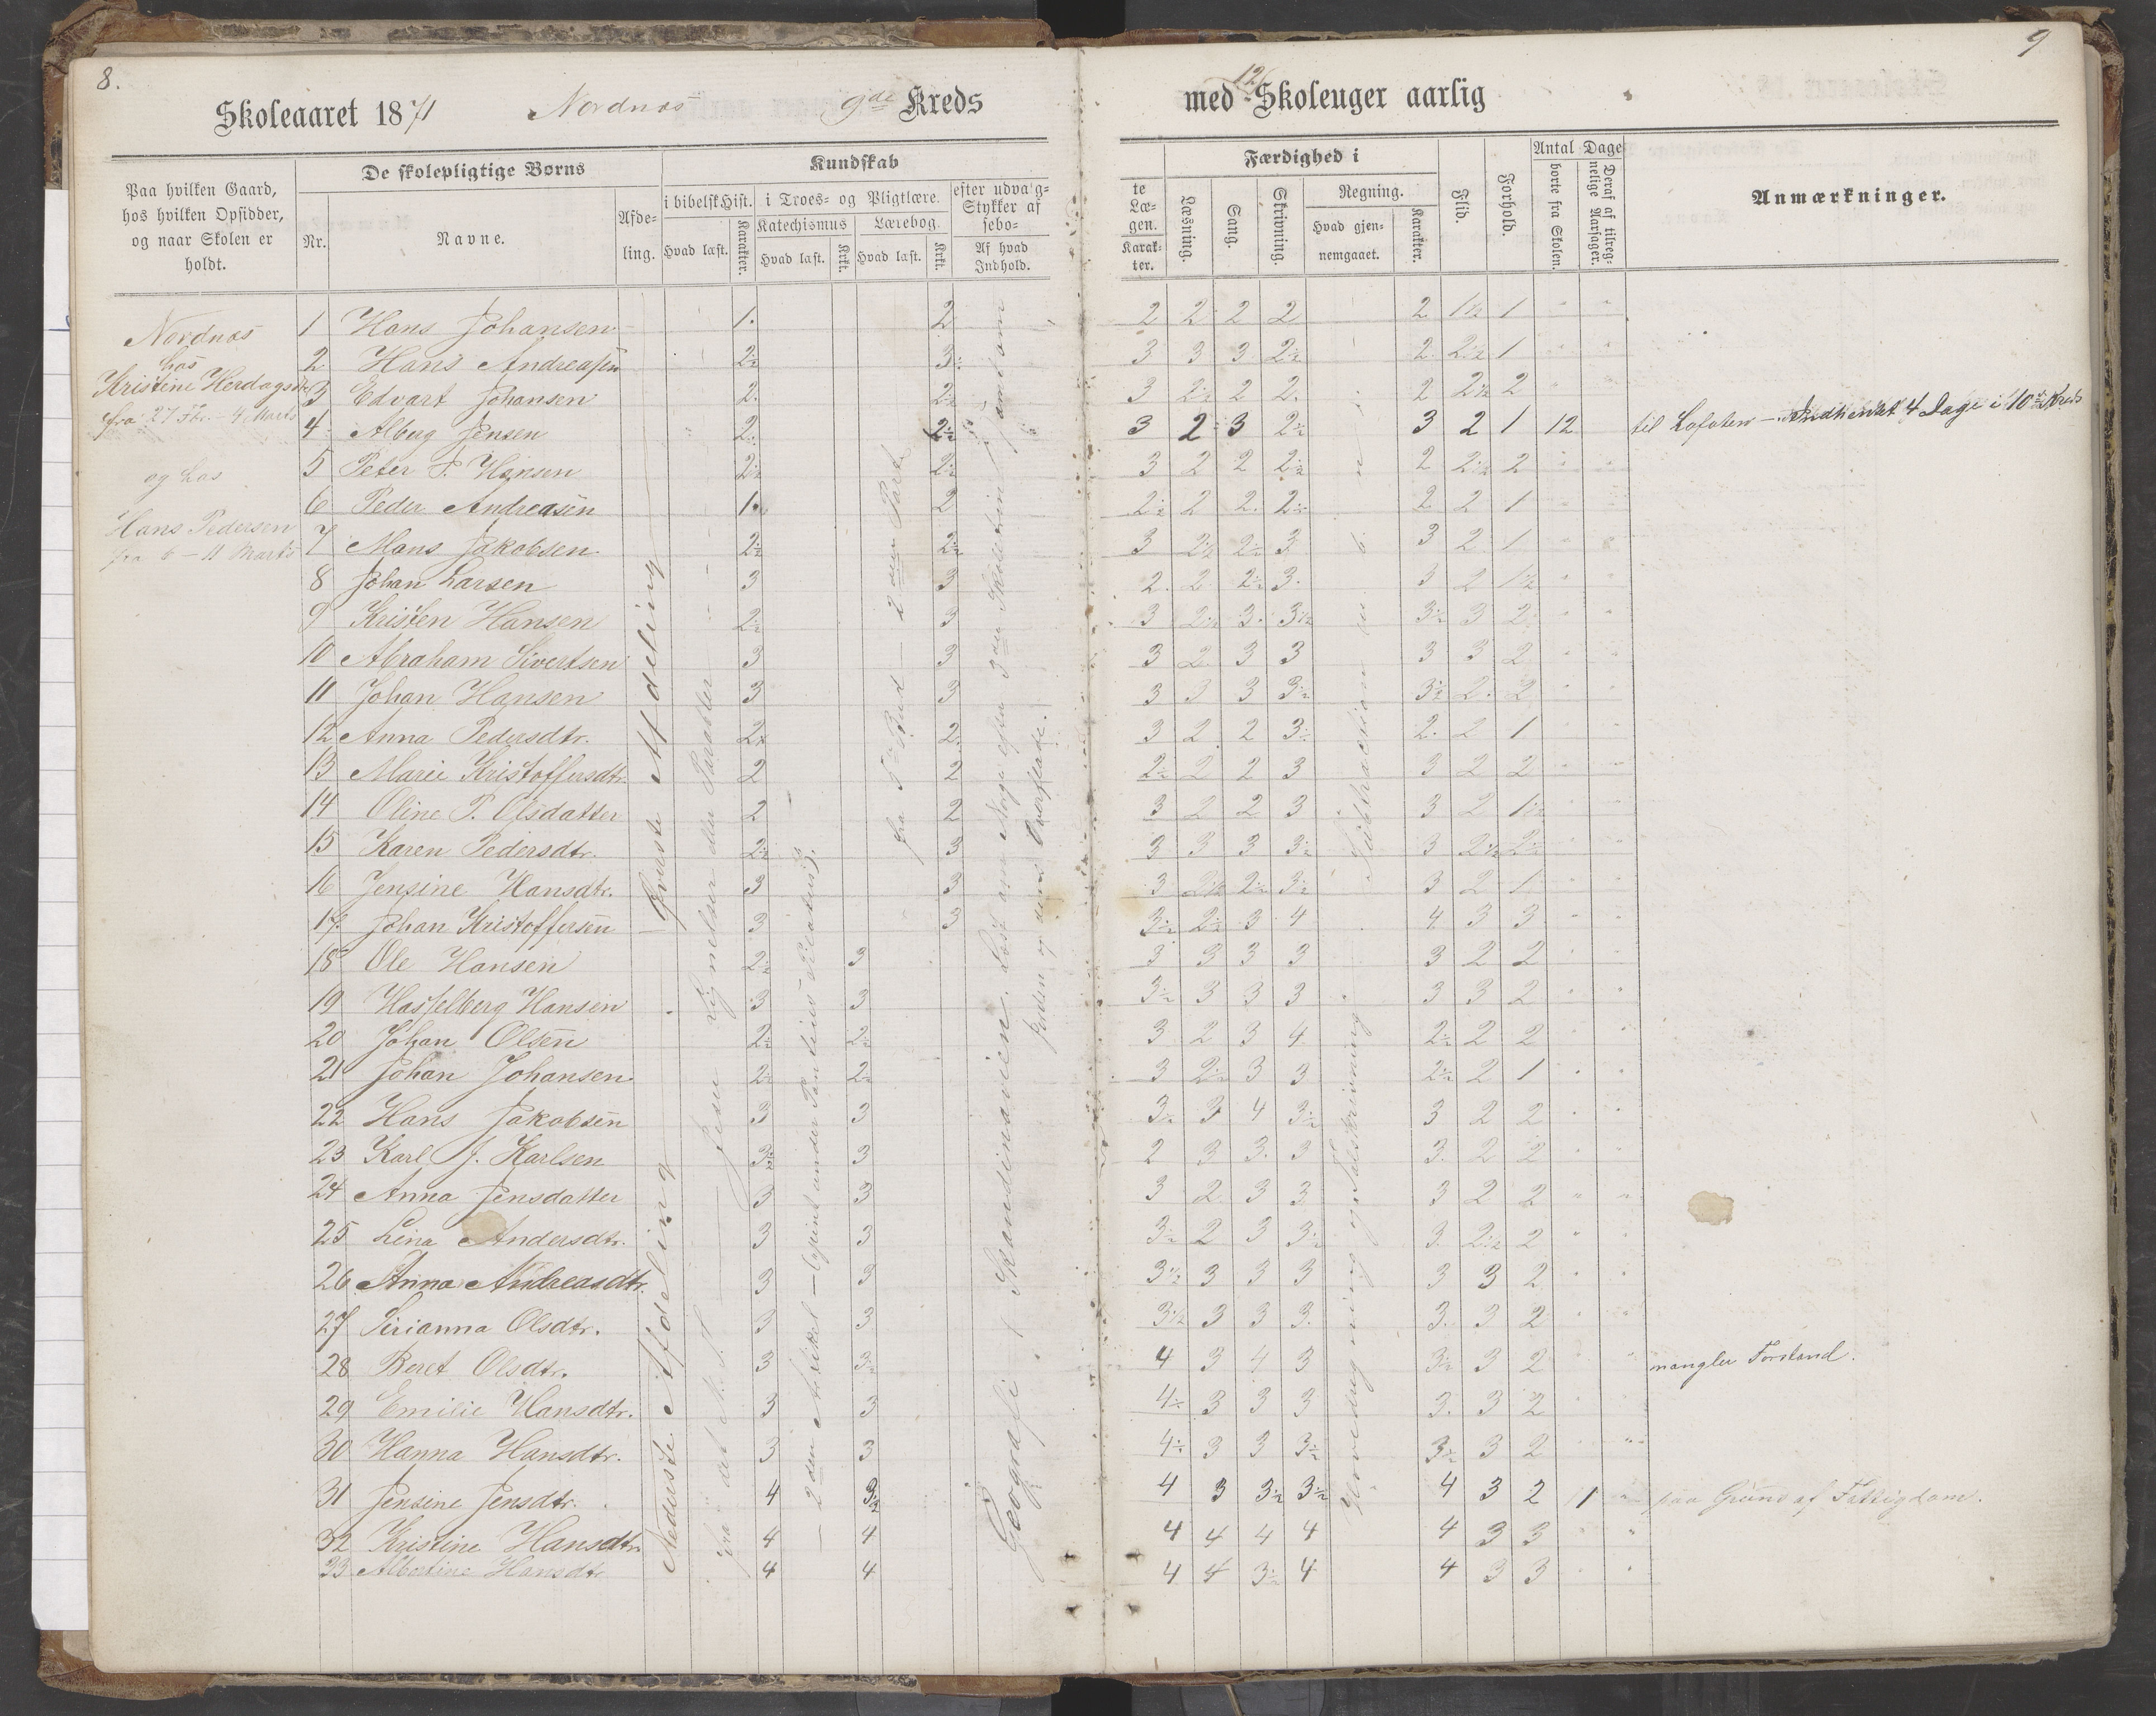 8.
Skoleaaret 1871 Nordnæs 9de Kreds
Paa hvilken Gaard,
hos hvilken Opsidder,
og naar Skolen er
holdt.
De skolepligtige Børns
Nr. Navne. Afde-
ling.
Kundskab
i bibelsk Hist. i Troes- og Pligtlære. efter udvalg-
Stykker af
sebo-
Hvad læst. Karakter. Katechismus Lærebog.
Hvad læst. Krkt. Hvad læst. Krkt. Af hvad
Indhold.
Nordnæs
hos
Kristine Herdagsdtr
fra 27 Fbr. - 4 Marts
og hos
Hans Pedersen
fra 6 - 11 Marts
1 Hans Johansen 1. 2
2 Hans Andreasen 2½ 3
3 Edvart Johansen 2. 2½
4 Alberg Jensen 2. 2½
5 Peter P. Hansen 2½ 2½
6 Peder Andreasen 1. 2
7 Mons Jakobsen 2½ 2½
8 Johan Larsen 3 3
9 Kristen Hansen 2½ 3
10 Abraham Sivertsen 3 3
11 Johan Hansen 3 3
12 Anna Pedersdtr. 2 2
13 Marie Kristoffersdtr. 2 2
14 Oline P. Olsdatter 2 2
15 Karen Pedersdtr. 2½ 3
16 Jensine Hansdtr. 3 3
17 Johan Kristoffersen 3 3
18 Ole Hansen 2½ 3
19 Hasselberg Hansen 3 3
20 Johan Olsen 2½ 2½
21 Johan Johansen 2½ 2½
22 Hans Jakobsen 3 3
23 Karl J. Karlsen 3½ 3
24 Anna Jensdatter 3 3
25 Lina Andersdtr. 3 3
26 Anna Andreasdtr. 3 3
27 Sirianna Olsdtr. 3 3
28 Beret Olsdtr. 3 3½
29 Emilie Hansdtr. 3 3
30 Hanna Hansdtr. 3 3
31 Jensine Jensdtr. 4 3½
32 Kristine Hansdtr 4 4
33 Albertine Hansdtr 4 4
Øverste Afdeling
Nederste Afdeling
fra 5te Bud — 2den Part
Geografi: Skandinavien. Læst om Norge efter
Jorden og dens Overflade.
9
med 12 Skoleuger aarlig
te
Læ-
gen.
Karak-
ter.
Færdighed i
Læsning. Sang. Skrivning. Regning.
Hvad gjen-
nemgaaet. Karakter.
Flid. Forhold. Antal Dage
borte fra Skolen. Deraf af tilreg-
nelige Aarsager.
Anmærkninger.
2 2 2 2 2 1½ 1 " "
3 3 3 2½ 2 2½ 1 " "
3 2½ 2 2. 2 2½ 2 " "
3 2 3 2½ 3 2 1 12 til Lofoten — Indhentet 4 Dage i 10de Kreds
3 2 2 2½ 2 2½ 2 " "
2½ 2 2. 2½ 2 2 1 " "
3 2½ 2½ 3 3 2 1 " "
2. 2 2½ 3. 3 2 1½ " "
3 2½ 3. 3½ 3½ 3 2 " "
3 2. 3 3 3 3 2 " "
3 3 3 3½ 3½ 2. 2 " "
3 2 2 3½ 2. 2 1 " "
2½ 2 2 3 3 2 2 " "
3 2 2 3 3 2 1½ " "
3 3 3 3½ 3 2½ 2½ " "
3 2½ 2½ 3½ 3 2 1 " "
3½ 2½ 3 4 4 3 3 " "
3 3 3 3 3 2 2 " "
3½ 3 3 3 3 3 2 " "
3 2 3 4 2½ 2 2 " "
3 2½ 3 3 2½ 2 1 " "
3½ 3 4 3½ 3 2 2 " "
2 3 3. 3 3. 2 2 " "
3 2 3 3 3 2 2 " "
3½ 2 3 3½ 3. 2½ 2 " "
3½ 3 3 3 3 3 2 " "
3½ 3 3 3. 3. 3 2 " "
4 3 4 3 3½ 3 2 " " mangler Forstand.
4½ 3 3 3 3. 3 2 " "
4½ 3 3 3½ 3½ 3 2 " "
4 3 3½ 3½ 4 3 2 1 " paa Grund af Fattigdom.
4 4 4 4 4 3 3 " "
4 4 3½ 4 4 3 3 " "
Subtraction